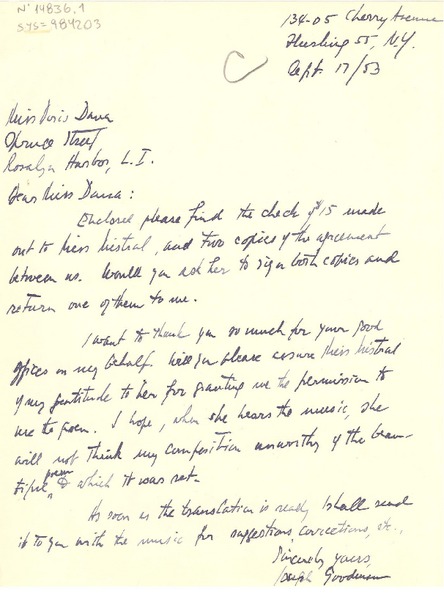 Nº 14836,1
SYS= 984203
134-05 Cherry Avenue
Flushing 55, N.Y.
Sept. 17/53
Miss Doris Dana
Spruce Street,
Roselyn Harbor, L.I.
Dear Miss Dana:
Enclosed please find the check of $15 made
out to Miss Mistral, and two copies of the agreement
between us. Would you ask her to sign both copies and
return one of them to me.
I want to thank you so much for your good
offices on my behalf. Will you please assure Miss Mistral
of my gratitude to her for granting me the permission to
use the poem. I hope, when she hears the music, she
will not think my composition unworthy of the beau-
tiful poem to which it was set.
As soon as the translation is ready I shall send
it to you with the music for suggestions, corrections, etc.,
Sincerely yours,
Joseph Goodman